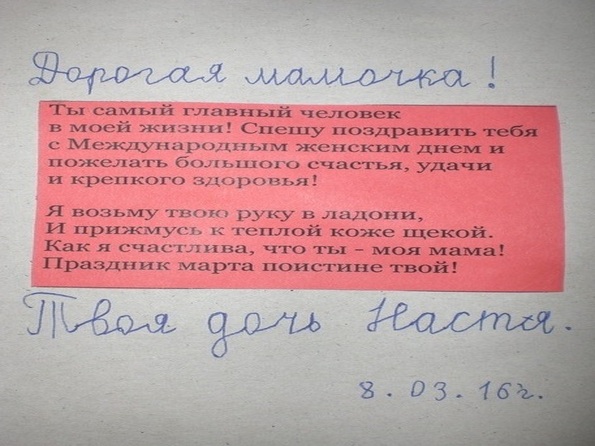 Дорогая мамочка!
Ты самый главный человек
в моей жизни! Спешу поздравить тебя
с Международным женским днем и
пожелать большого счастья, удачи
и крепкого здоровья!
Я возьму твою руку в ладони,
И прижмусь к теплой коже щекой.
Как я счастлива, что ты - моя мама!
Праздник марта поистине твой!
Твоя дочь Настя.
8.03.16г.